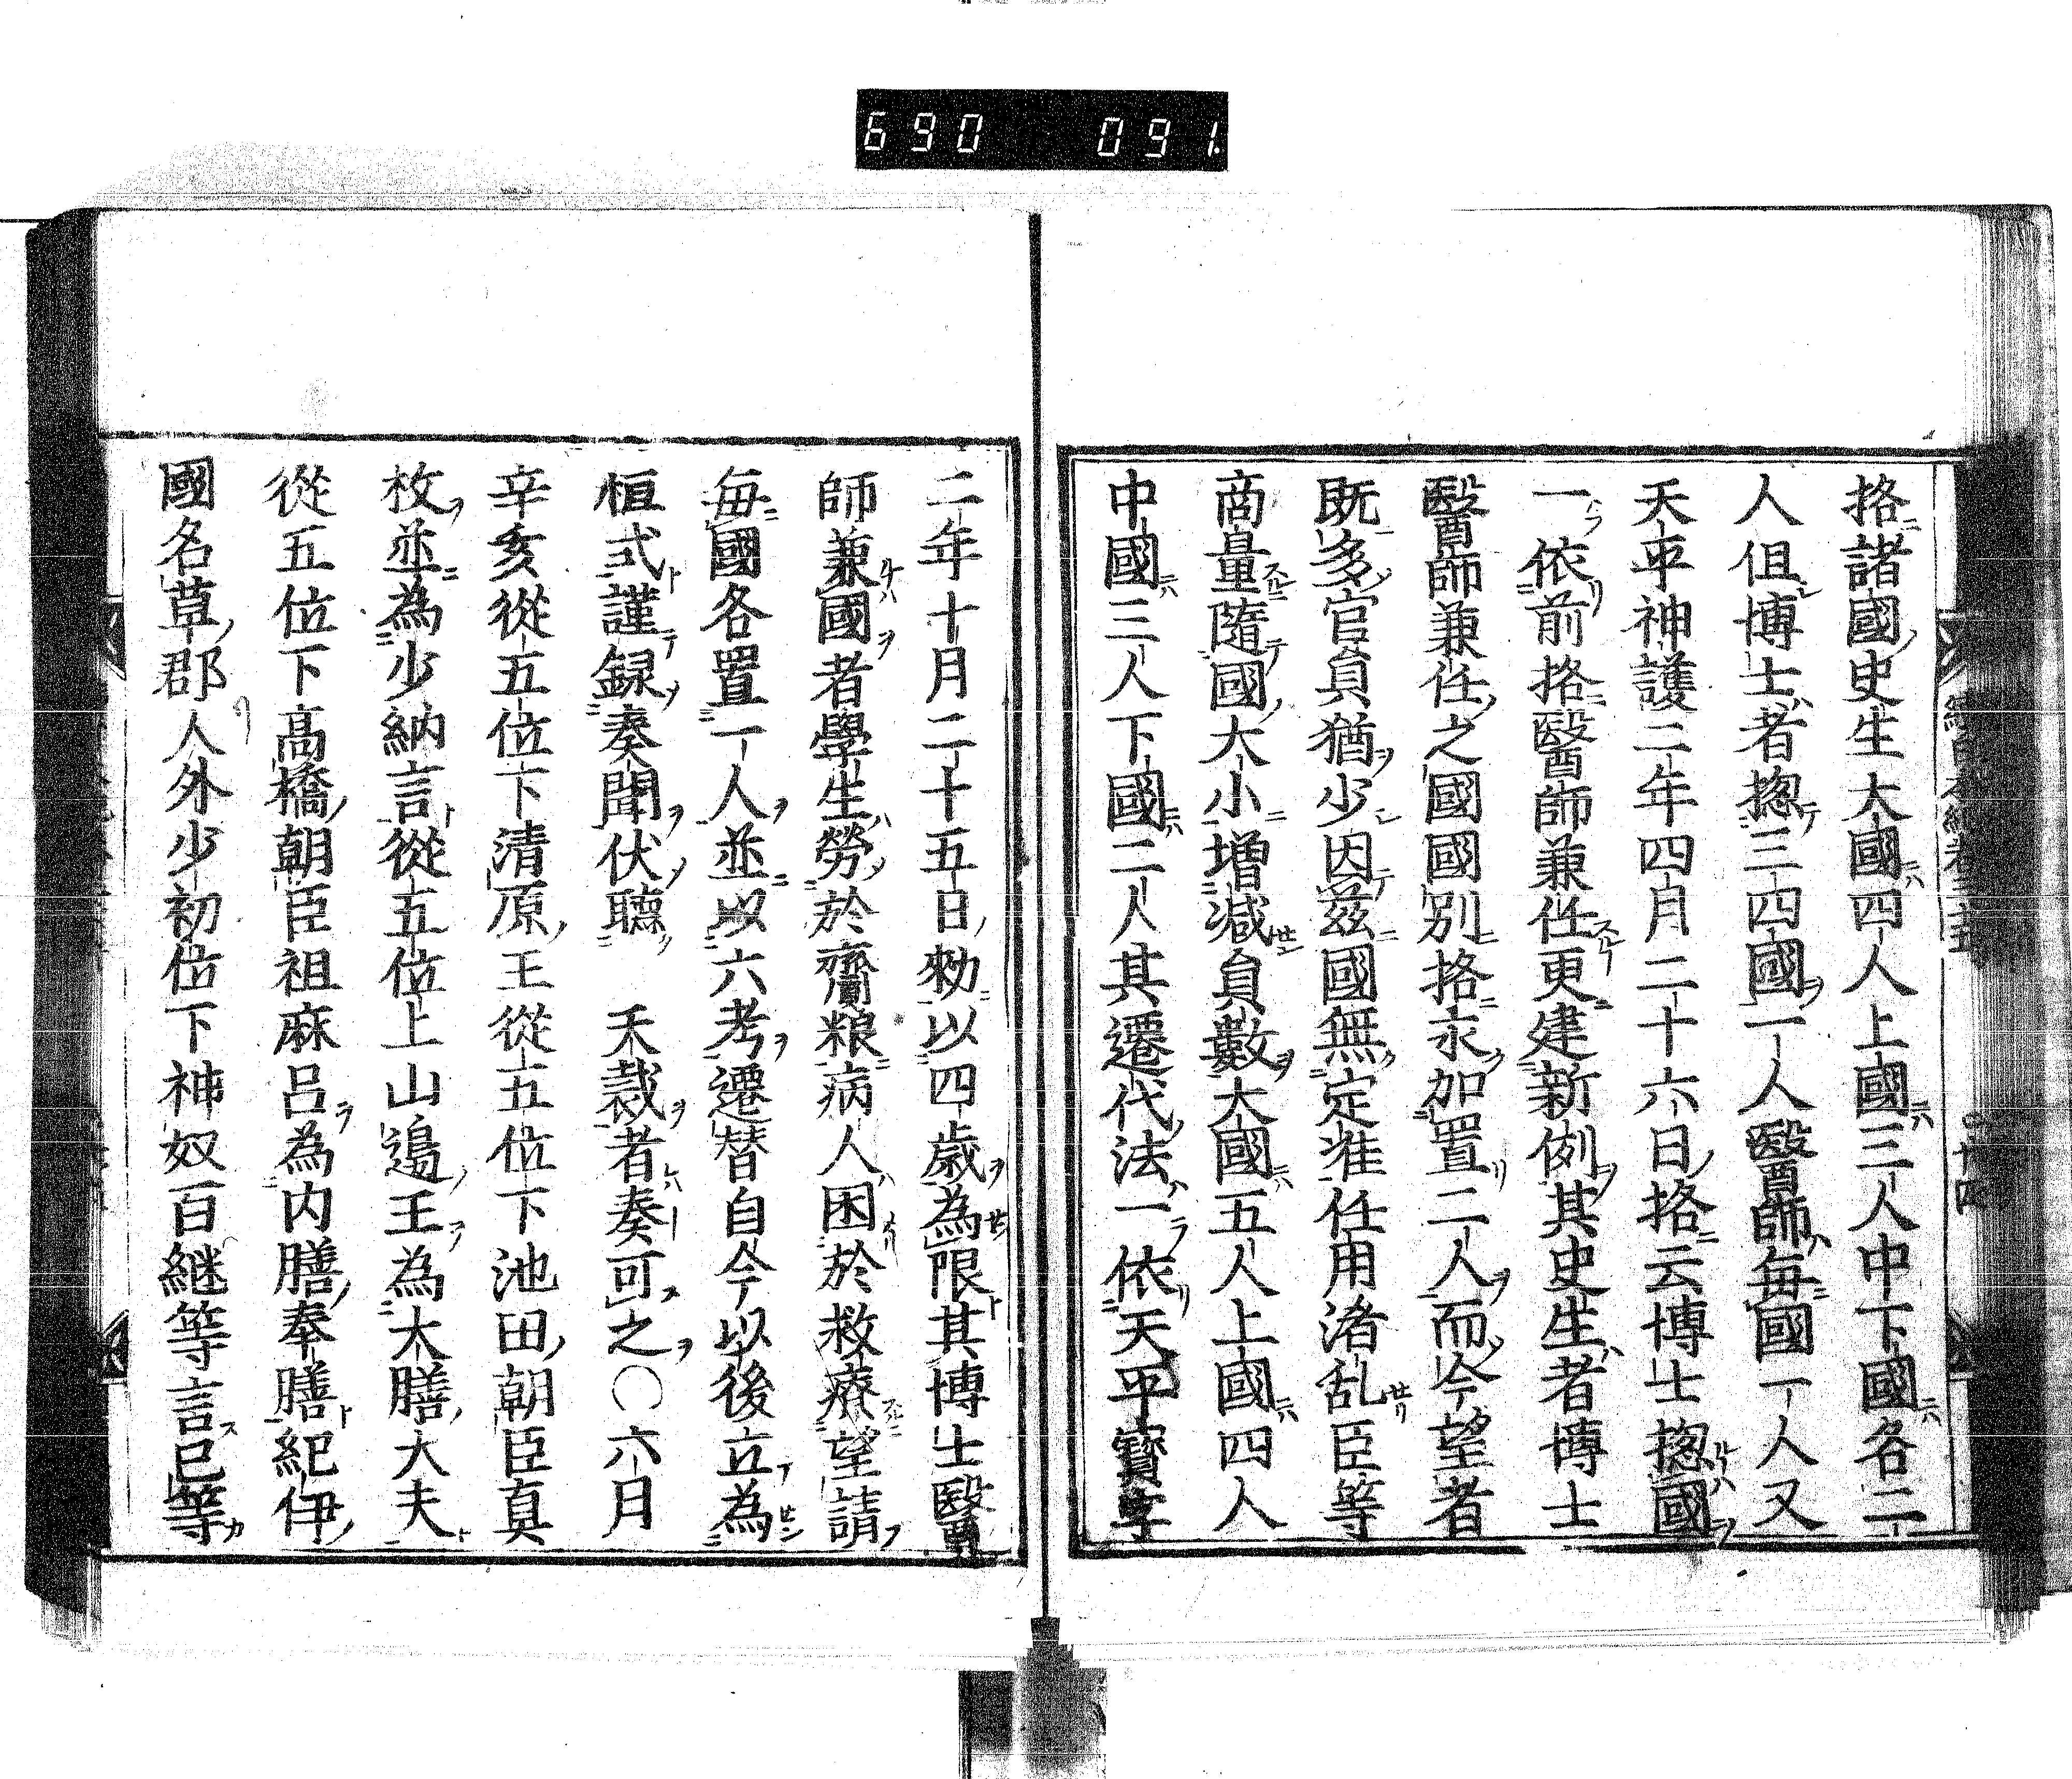 690 091.
挌諸國史生大國四人上國三人中下國各二
人但博士者揔三四國一人醫師毎國一人又
天平神護二年四月二十六日挌云博士揔國
一依前挌醫師兼任更建新例其史生者博士
醫師兼任之國國別挌永加置二人而今望者
既多官員猶少因茲國無定准任用淆乱臣等
商量隨國大小増減員數大國五人上國四人
中國三人下國二人其遷代法一依天平寳字
二年十月二十五日勅以四歳為限其博士醫
師兼國者學生勞於齎粮病人困於救療望請
毎國各置一人並以六考遷替自今以後立為
恒式謹録奏聞伏聽　天裁者奏可之〇六月
辛亥從五位下清原王從五位下池田朝臣真
枚並為少納言從五位上山邊王為大膳大夫
從五位下高橋朝臣祖麻呂為内膳奉膳紀伊
國名草郡人外少初位下神奴百継等言己等